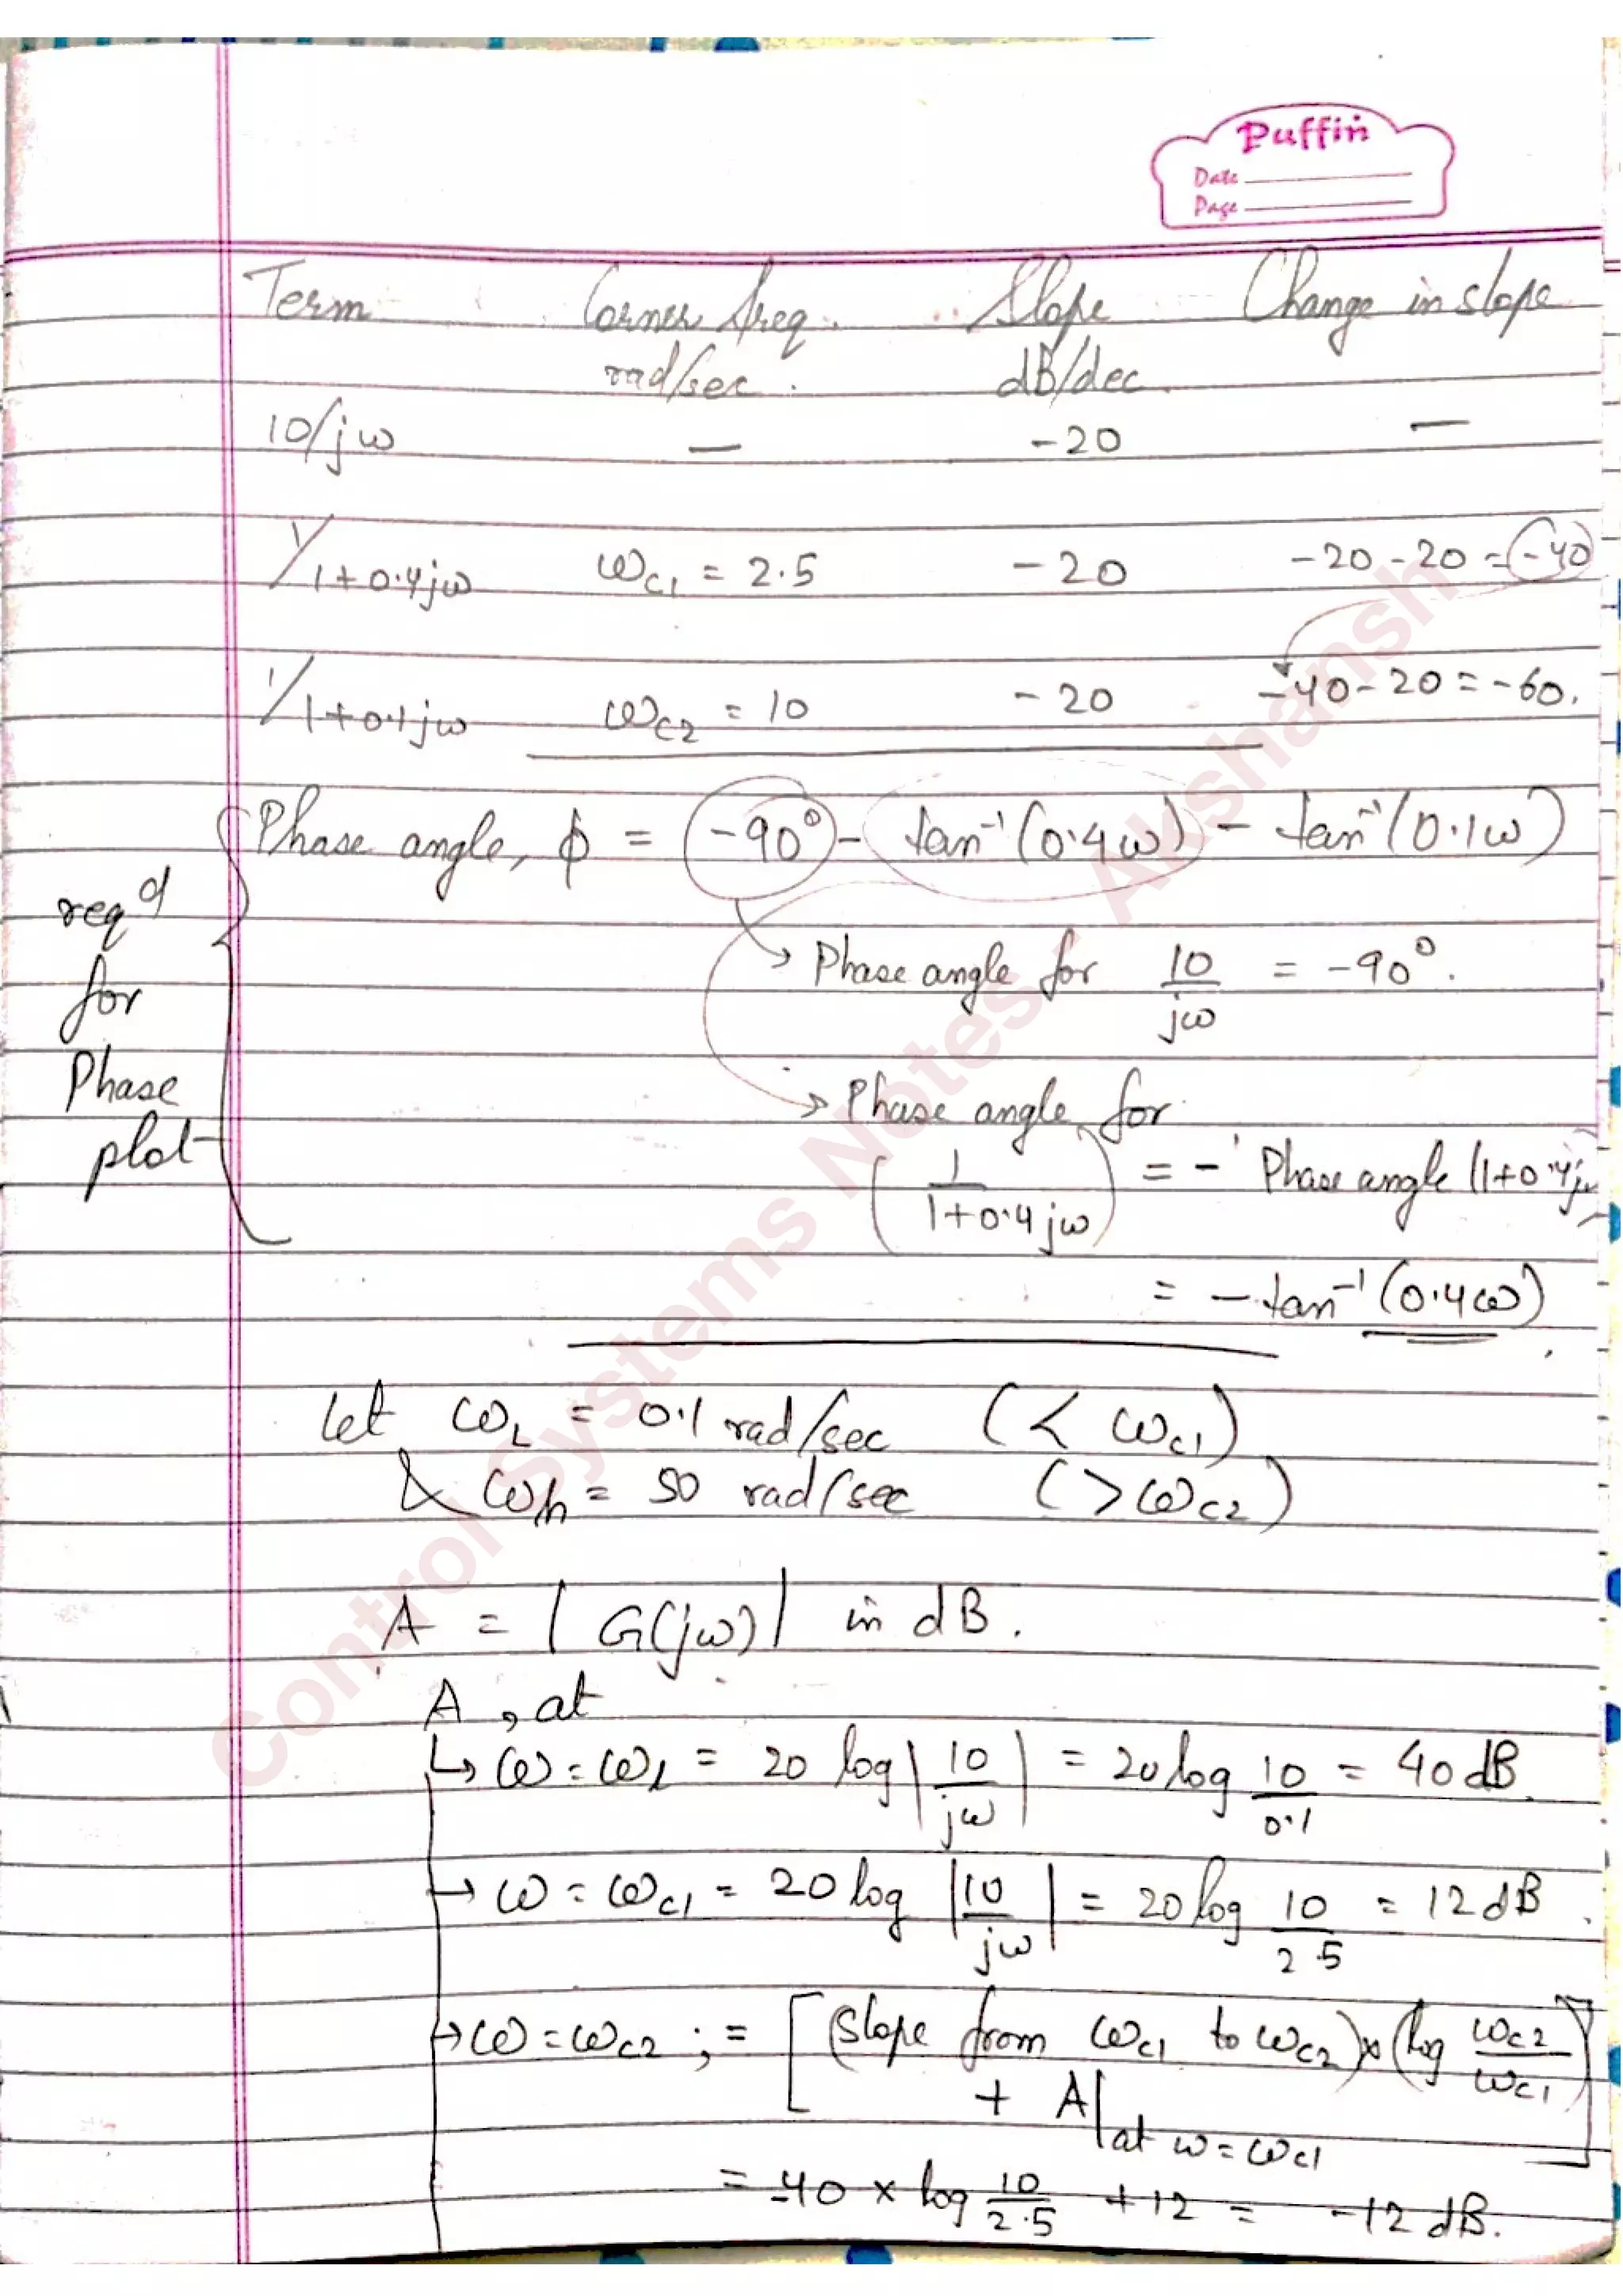 Puffin
Date
Page
Term Corner freq. Slope Change in slope
rad/sec. dB/dec
10/jω — -20 —
1/1+0.4jω ωc1 = 2.5 -20 -20-20 = -40
1/1+0.1jω ωc2 = 10 -20 -40-20 = -60.
Phase angle, ϕ = -90° - tan⁻¹(0.4ω) - tan⁻¹(0.1ω)
req d
for
Phase
plot
→ Phase angle for 10/jω = -90°.
→ Phase angle for
(1/1+0.4jω) = - Phase angle (1+0.4jω)
= -tan⁻¹(0.4ω)
Let ωL = 0.1 rad/sec (< ωc1)
& ωh = 50 rad/sec (> ωc2)
A = |G(jω)| in dB.
A, at
↳ ω = ωL = 20 log |10/jω| = 20 log 10/0.1 = 40 dB.
→ ω = ωc1 = 20 log |10/jω| = 20 log 10/2.5 = 12 dB.
→ ω = ωc2 ; = [(Slope from ωc1 to ωc2) × (log ωc2/ωc1)
+ A| at ω = ωc1 ]
= -40 × log 10/2.5 + 12 = -12 dB.
Control Systems Notes - Akshansh